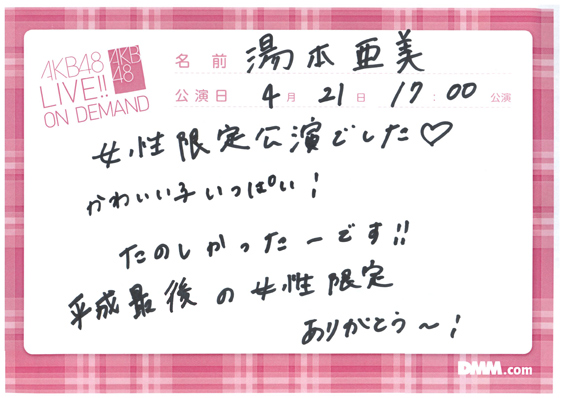 AKB48
LIVE!!
ON DEMAND
AKB
48
名前 湯本亜美
公演日 4月21日 17:00公演
女性限定公演でした♡
かわいい子いっぱい!
たのしかったーです!!
平成最後の女性限定
ありがとう〜!
DMM.com